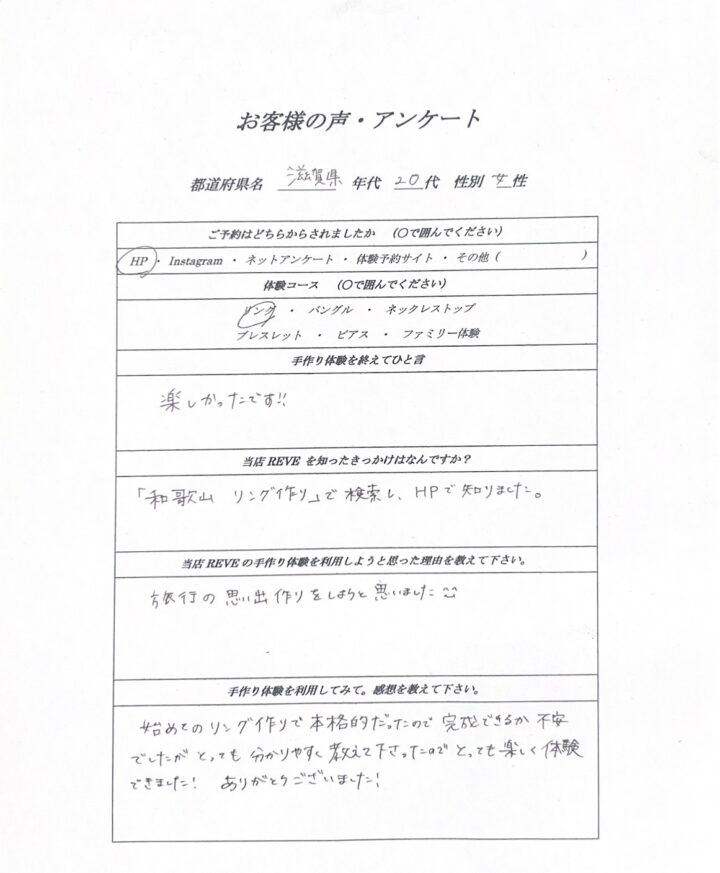 お客様の声・アンケート
都道府県名 滋賀県 年代 20代 性別 女性
ご予約はどちらからされましたか (〇で囲んでください)
HP・Instagram・ネットアンケート・体験予約サイト・その他( )
体験コース (〇で囲んでください)
リング ・ バングル ・ ネックレストップ
ブレスレット ・ ピアス ・ ファミリー体験
手作り体験を終えてひと言
楽しかったです!!
当店REVEを知ったきっかけはなんですか?
「和歌山 リング作り」で検索し、HPで知りました。
当店REVEの手作り体験を利用しようと思った理由を教えて下さい。
旅行の思い出作りをしようと思いました
手作り体験を利用してみて。感想を教えて下さい。
始めてのリング作りで本格的だったので完成できるか不安
でしたがとっても分かりやすく教えて下さったのでとっても楽しく体験
できました! ありがとうございました!